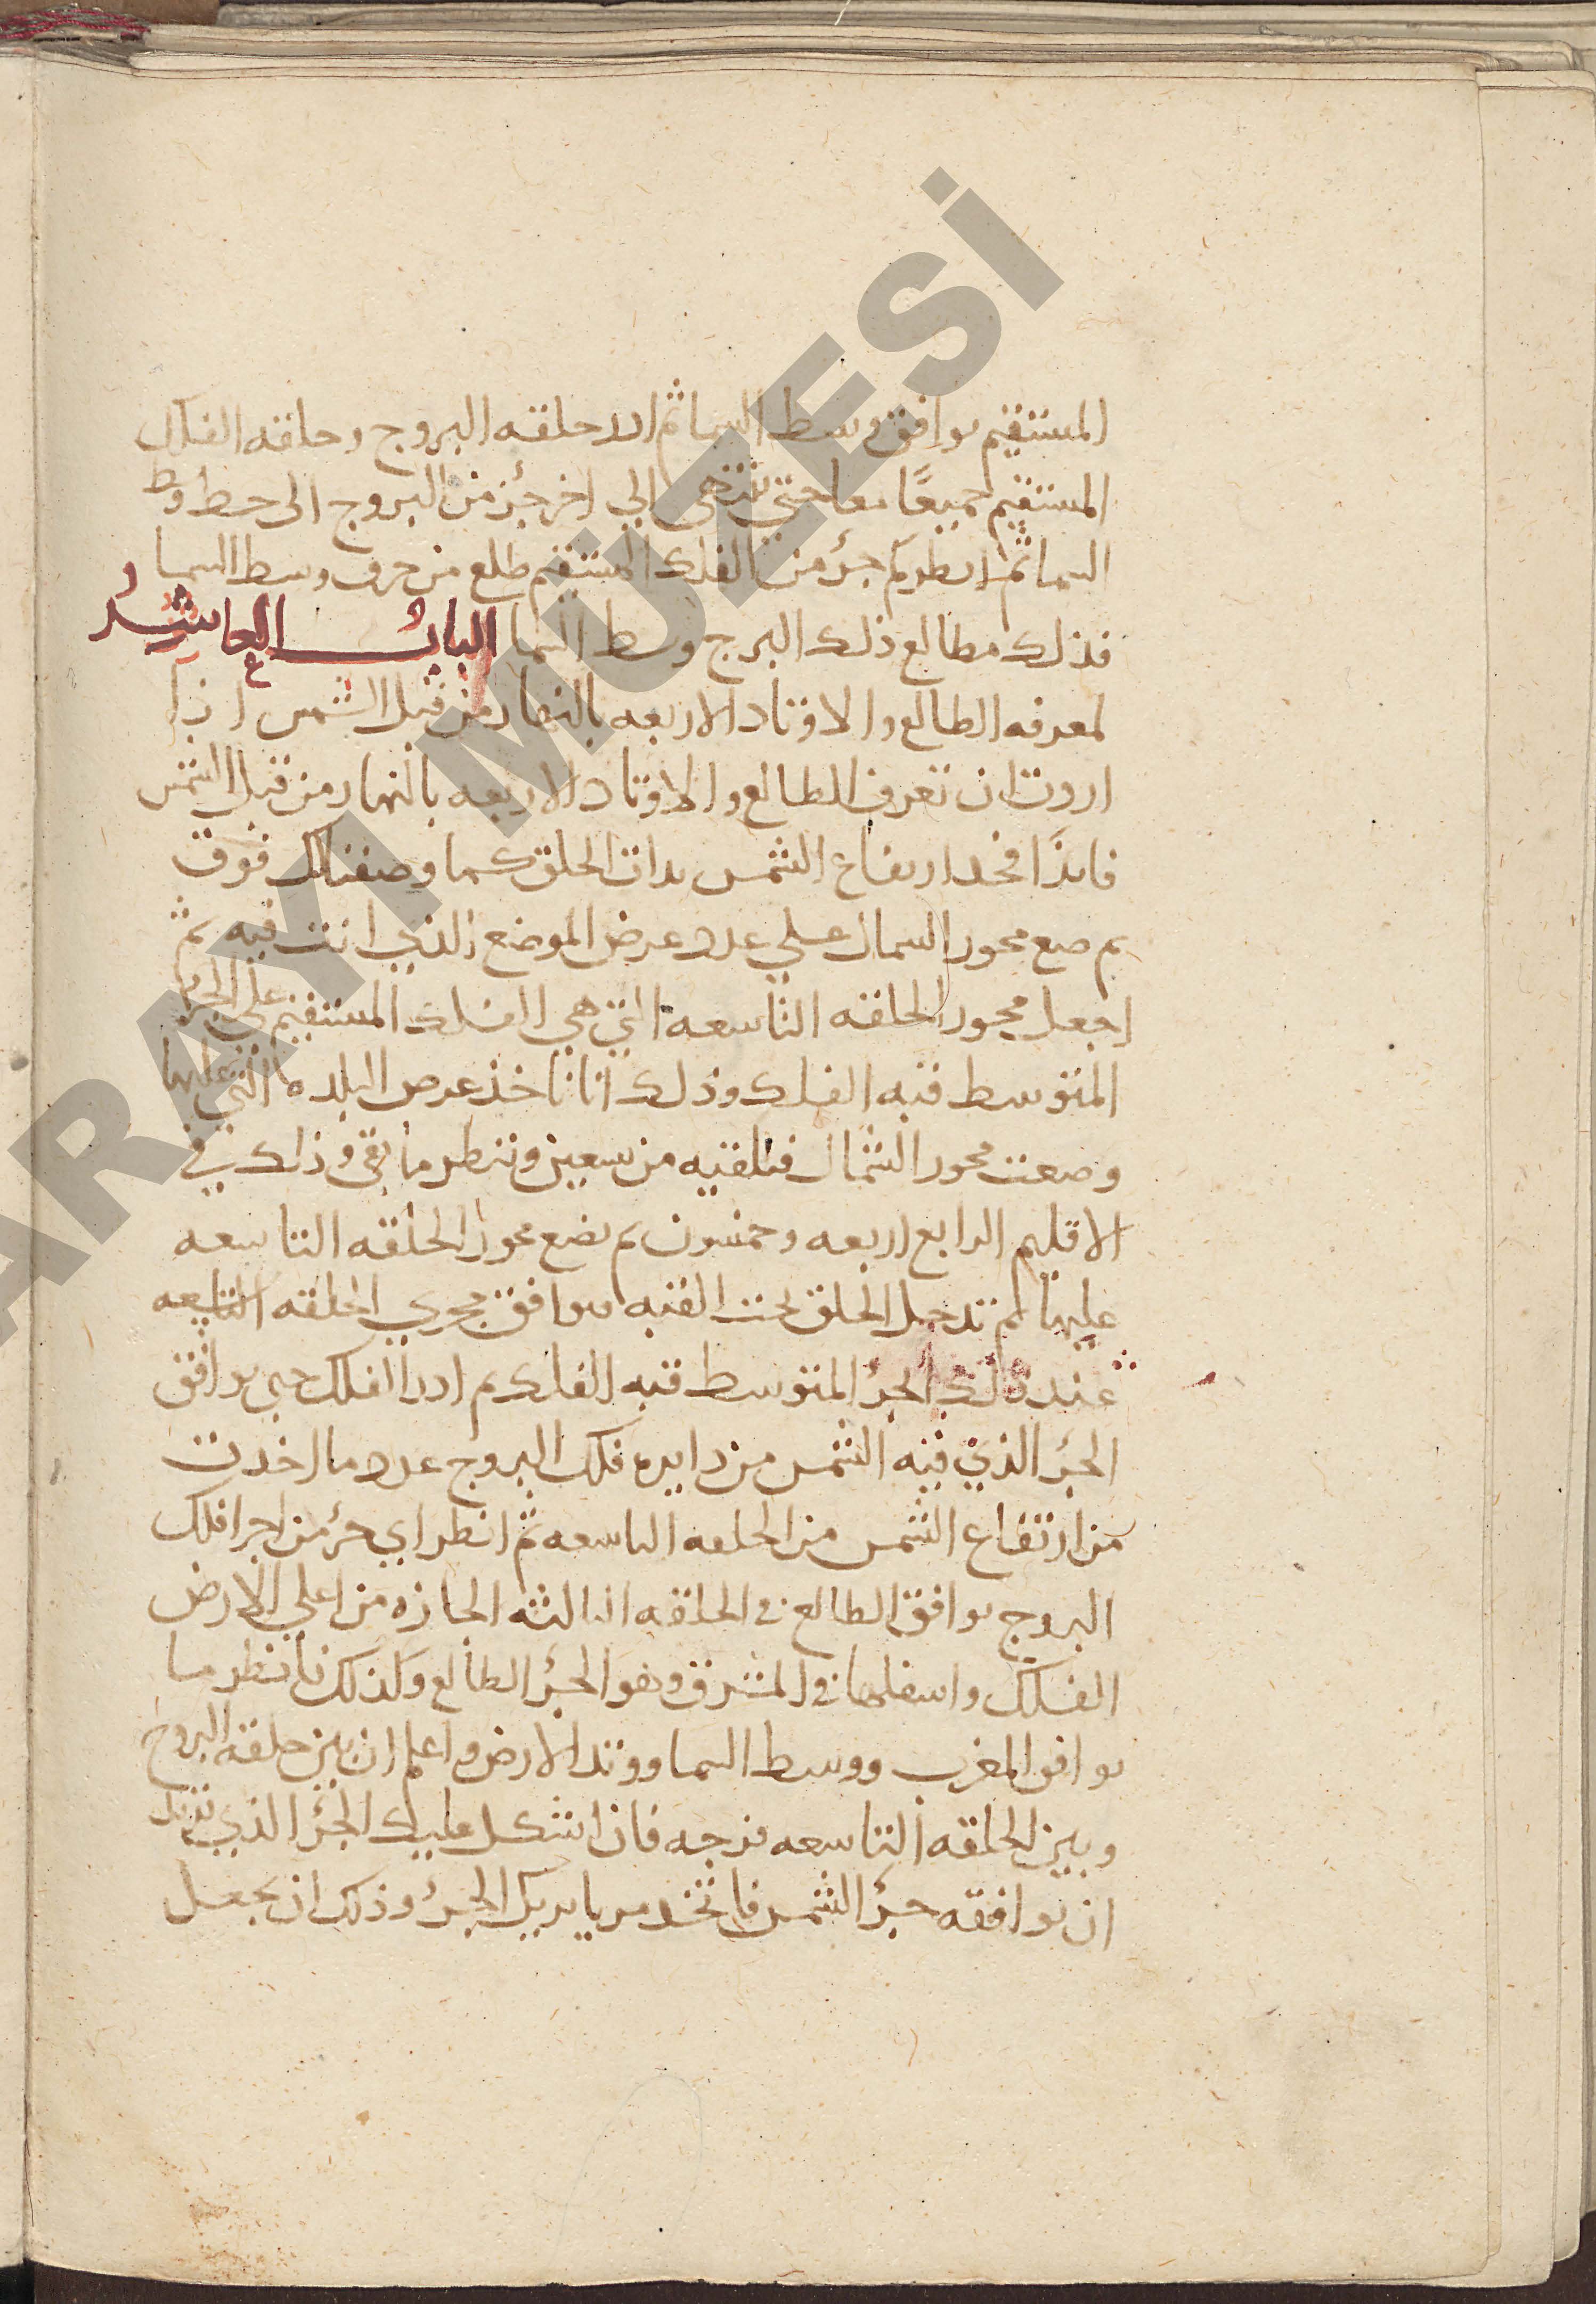 المستقيم يوافق وسط السما ثم ادر حلقه البروج وحلقه الفلك
المستقيم جميعًا معا حتي تنتهى الي اخر جزء من البروج الى خط وسط
السما ثم انظر كم جزء من الفلك المستقيم طلع من حرف وسط السما
فذلك مطالع ذلك البرج وسط السما البابُ العاشرُ
لمعرفه الطالع والاوتاد الاربعه بالنهار من قبل الشمس اذا
اردت ان تعرف الطالع والاوتاد الاربعه بالنهار من قبل الشمس
فابدَا فخذ ارتفاع الشمس بذات الحلق كما وصفنالك فوق
ثم ضع محور الشمال علي عدد عرض الموضع الذي انت فيه ثم
اجعل محور الحلقه التاسعه التي هي الفلك المستقيم على الجزء
المتوسط قبه الفلك وذلك انا ناخذ عرض البلده التي عليها
وضعت محور الشمال فنلقيه من تسعين وننظر ما بقي وذلك في
الاقليم الرابع اربعه وخمسون ثم نضع محور الحلقه التاسعه
عليها ثم تدخل الحلق تحت القبه فيوافق مجري الحلقه التاسعه
عند ذلك الجزء المتوسط قبه الفلك ثم ادر الفلك حتي يوافق
الجزء الذي فيه الشمس من دايره فلك البروج عدد ما اخذت
من ارتفاع الشمس من الحلقه التاسعه ثم انظر اي جزء من اجزا فلك
البروج يوافق الطالع في الحلقه الثالثه الجازه من اعلي الارض
الفلك واسفلها في المشرق وهو الجزء الطالع وكذلك فانظر ما
يوافق المغرب ووسط السما ووتد الارض واعلم ان بين حلقه البروج
وبين الحلقه التاسعه فرجه فان اشكل عليك الجزء الذي تريد
ان يوافقه جزء الشمس فاتخذ مريا يريك الجزء وذلك ان تجعل
ARAYI MÜZESİ